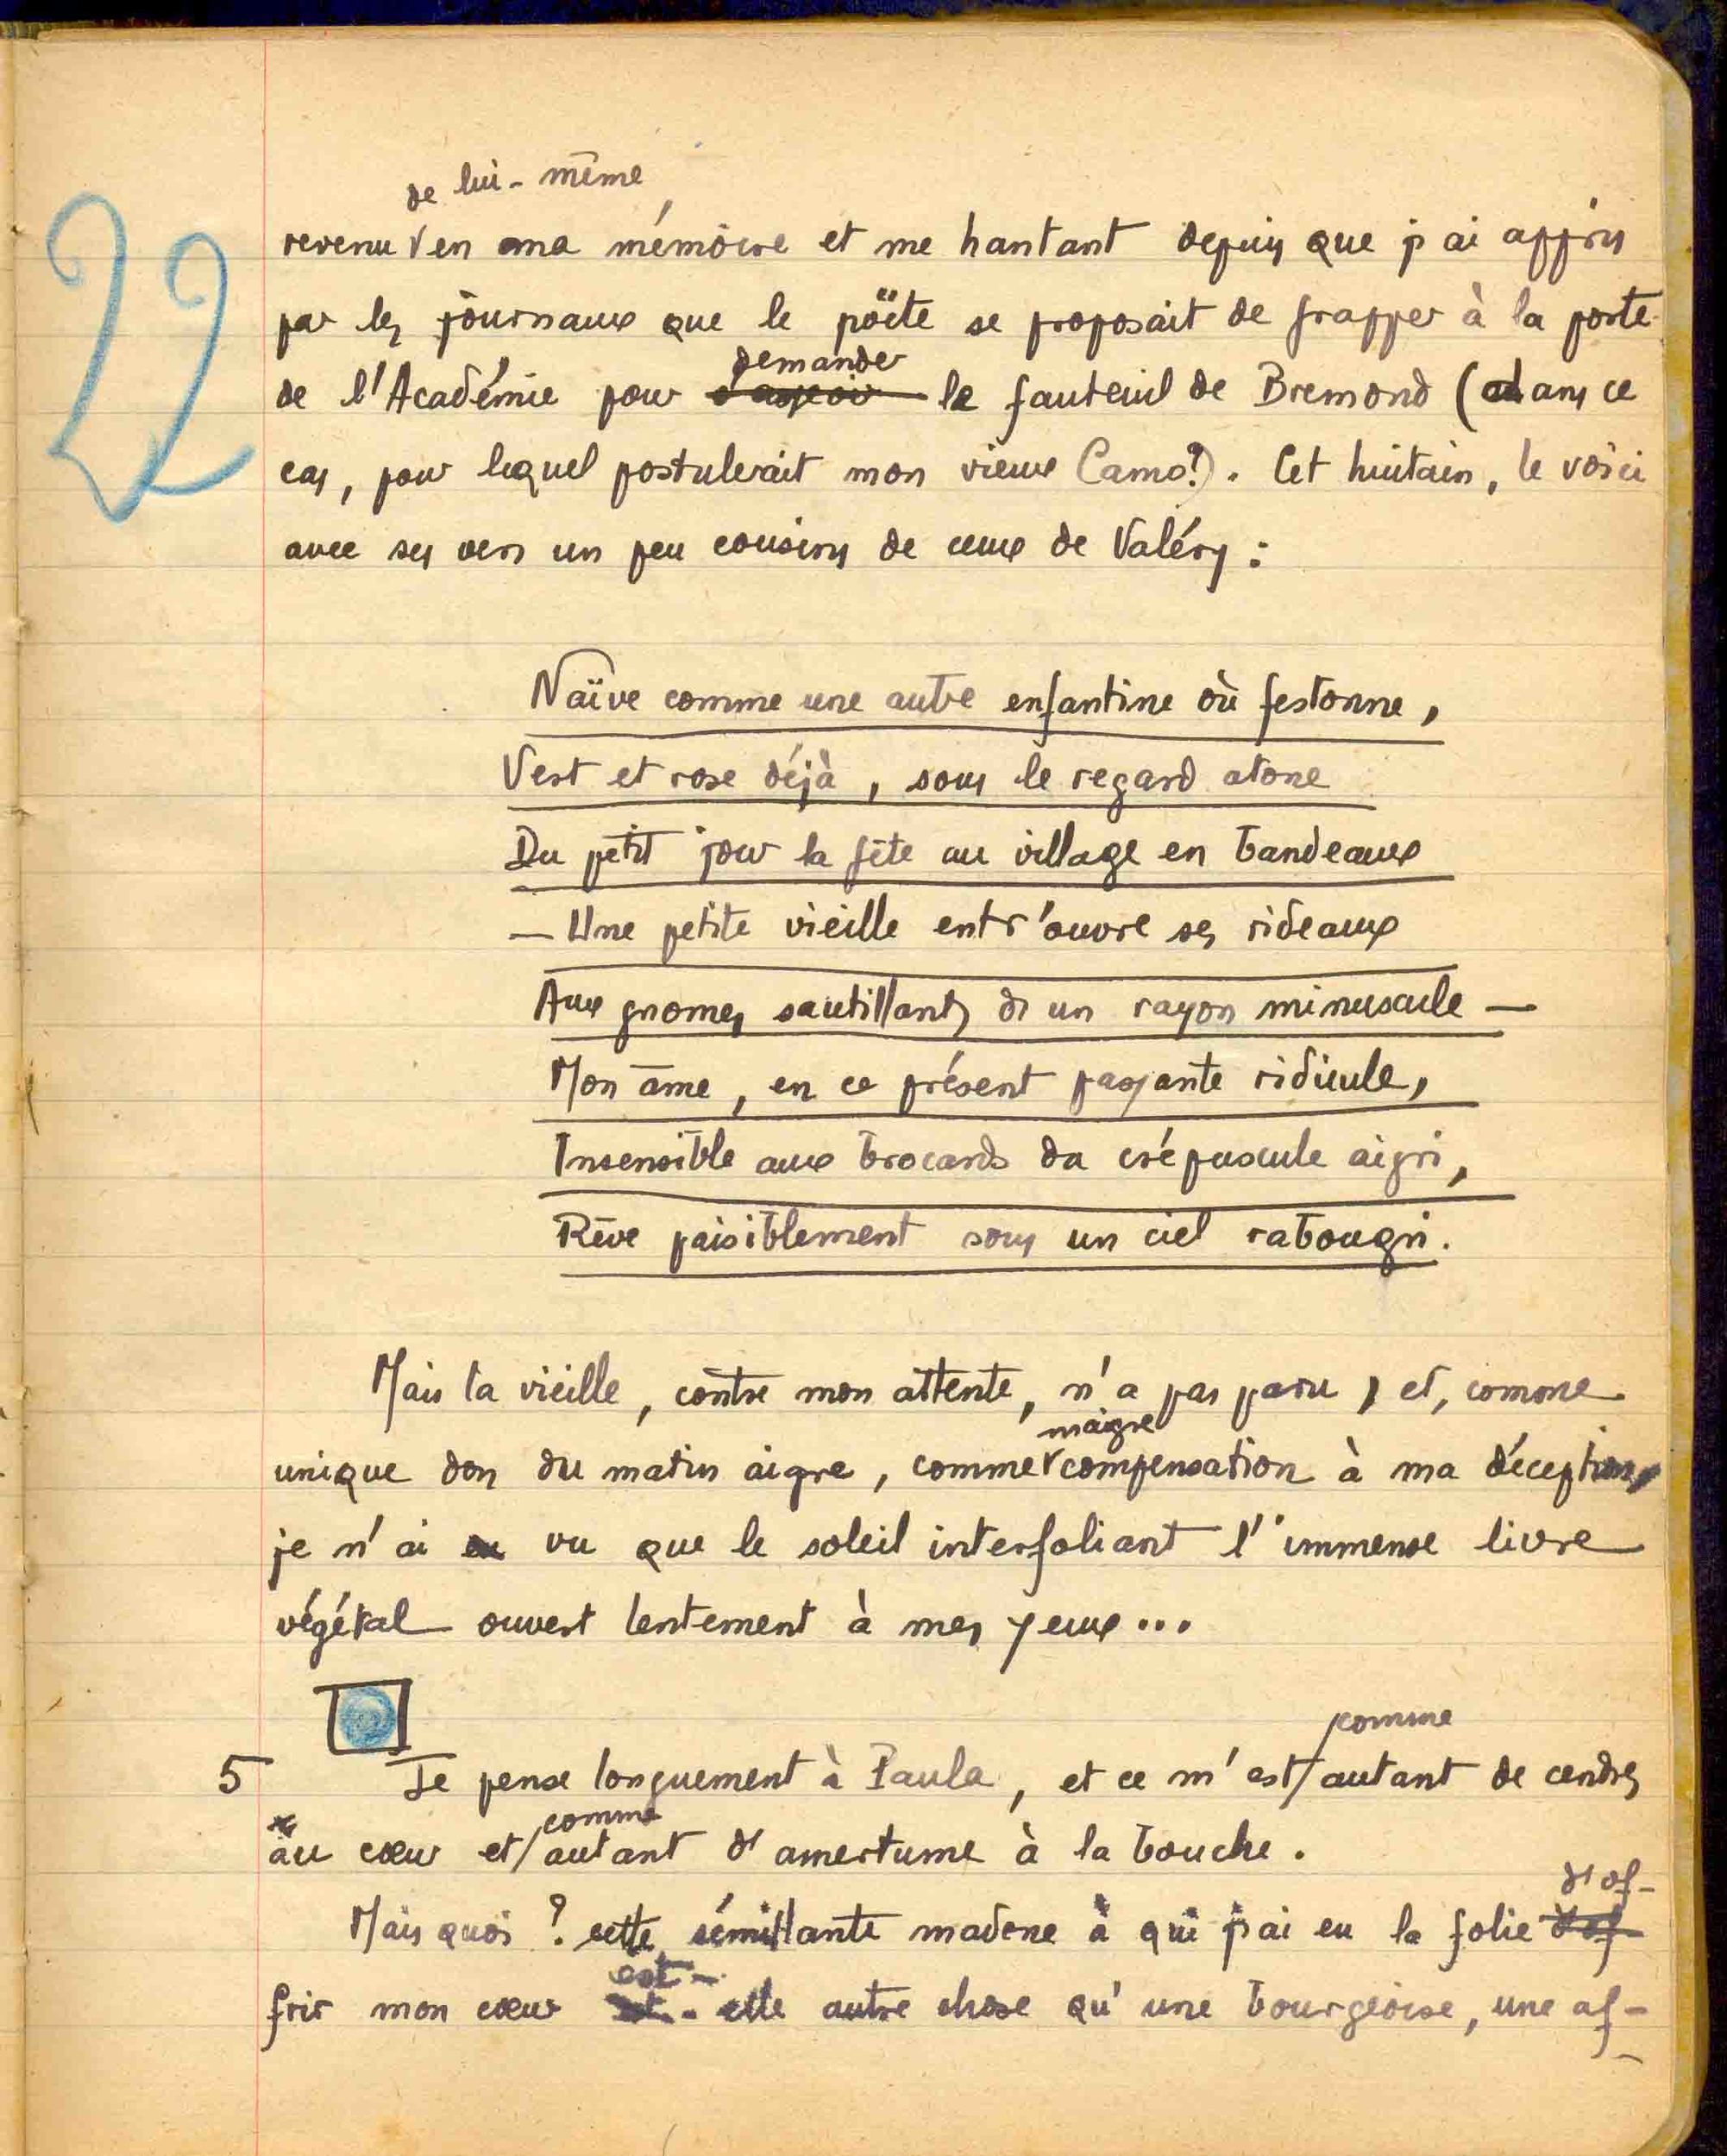 22
de lui-même,
revenu en ma mémoire et me hantant depuis que j'ai appris
par les journaux que le poëte se proposait de frapper à la porte
demander
de l'Académie pour s'asseoir le fauteuil de Bremond (dans ce
cas, pour lequel postulerait mon vieux Camo?). Cet huitain, le voici
avec ses vers un peu cousins de ceux de Valéry :
Naïve comme une autre enfantine où festonne,
Vert et rose déjà, sous le regard atone
Du petit jour la fête au village en bandeaux
— Une petite vieille entr'ouvre ses rideaux
Aux gnomes sautillants d'un rayon minuscule —
Mon âme, en ce présent passante ridicule,
Insensible aux brocards du crépuscule aigri,
Rêve paisiblement sous un ciel rabougri.
Mais la vieille, contre mon attente, n'a pas paru, et, comme
maigre
unique don du matin aigre, comme compensation à ma déception,
je n'ai vu que le soleil interfoliant l'immense livre
végétal ouvert lentement à mes yeux...
comme
5 Je pense longuement à Paula, et ce m'est autant de cendres
comme
au cœur et autant d'amertume à la bouche.
d'of-
Mais quoi ? cette sémillante madone à qui j'ai eu la folie d'of
est-
frir mon cœur elle autre chose qu'une bourgeoise, une af-